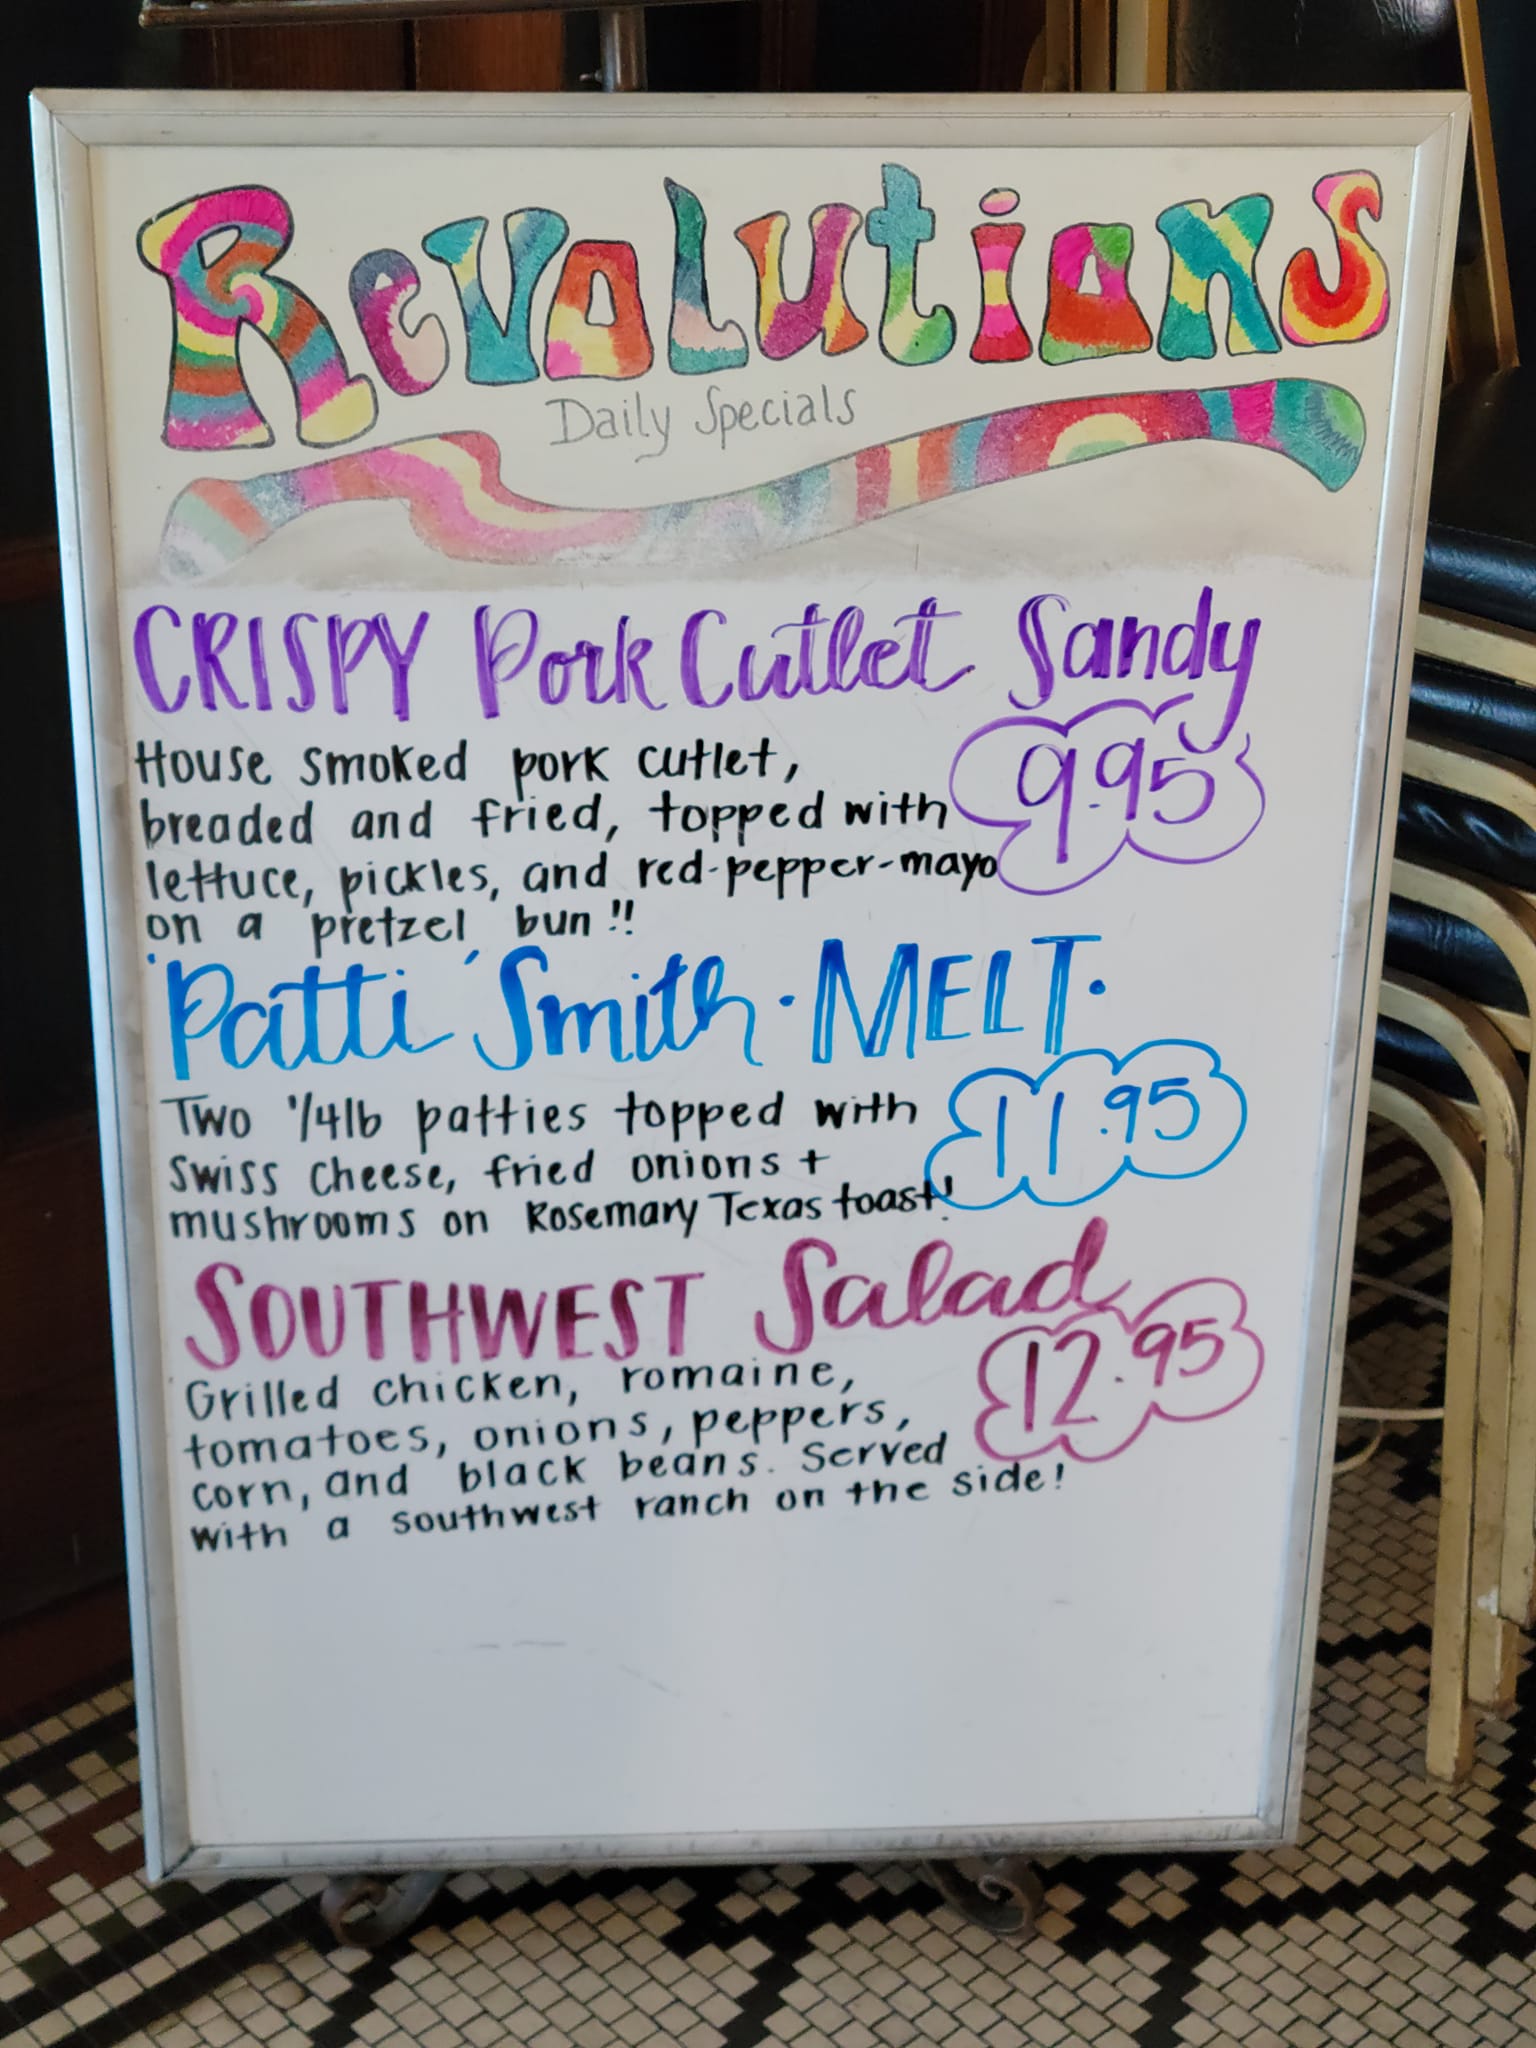 Revolutions
Daily Specials
CRISPY Pork Cutlet Sandy
9.95
House smoked pork cutlet,
breaded and fried, topped with
lettuce, pickles, and red-pepper-mayo
on a pretzel bun!!
'Patti' Smith · MELT ·
11.95
Two 1/4lb patties topped with
swiss cheese, fried onions +
mushrooms on Rosemary Texas toast!
SOUTHWEST Salad
12.95
Grilled chicken, romaine,
tomatoes, onions, peppers,
corn, and black beans. Served
with a southwest ranch on the side!